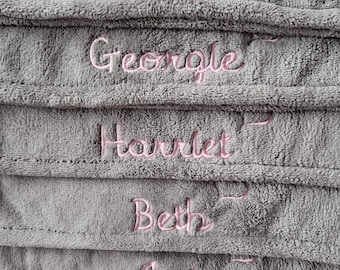 Georgie
Harriet
Beth